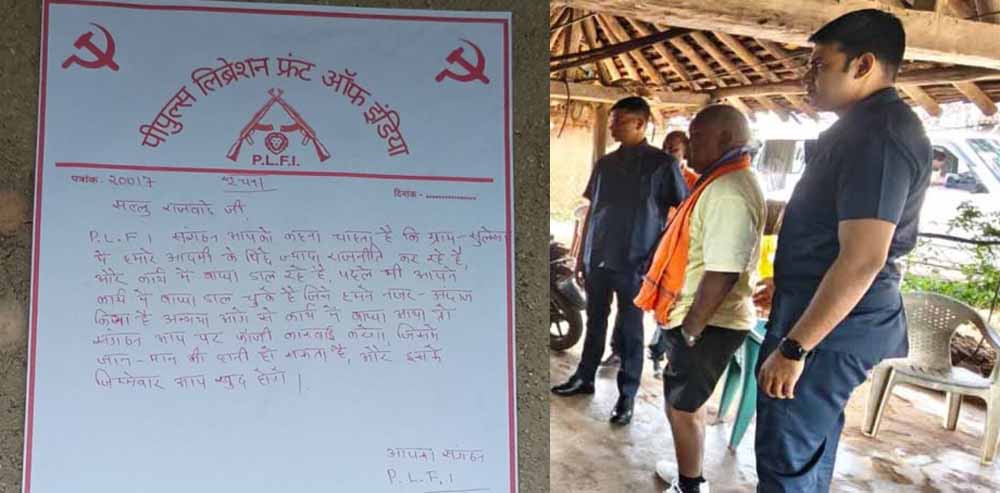 पीपुल्स लिब्रेशन फ्रंट ऑफ इंडिया
P.L.F.I.
पत्रांक- 20017 सूचना दिनांक - ..............
सल्लु राजवाडे जी,
P.L.F.I संगठन आपको कहना चाहता है कि ग्राम-
में हमारे आदमी के विरुद्ध ज्यादा राजनीति कर रहे है,
और कार्य में बाधा डाल रहे है, पहले भी आपने
कार्य में बाधा डाल चुके है जिसे हमने नजर-अंदाज
किया है अन्यथा आगे से कार्य में बाधा आया तो
संगठन आप पर फौजी कारवाई करेगा, जिसमें
जान-मान की हानी हो सकता है, और इसके
जिम्मेवार आप खुद होंगे।
आपका संगठन
P.L.F.I